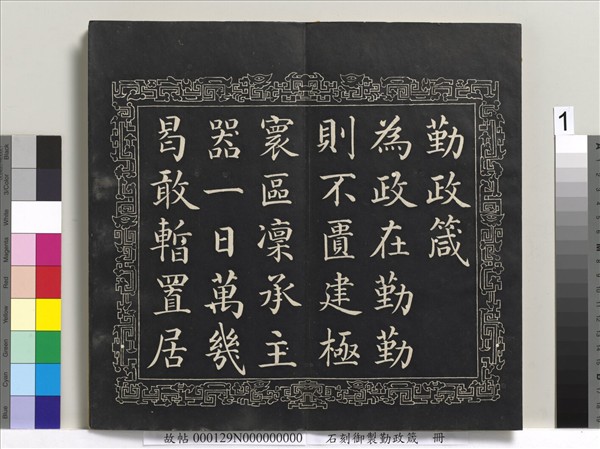 勤政箴
為政在勤勤
則不匱建極
寰區凜承主
器一日萬幾
曷敢暫置居
1
Black
3/Color
White
Magenta
Red
Yellow
Green
Cyan
Blue
故帖 000129N000000000 石刻御製勤政箴 冊